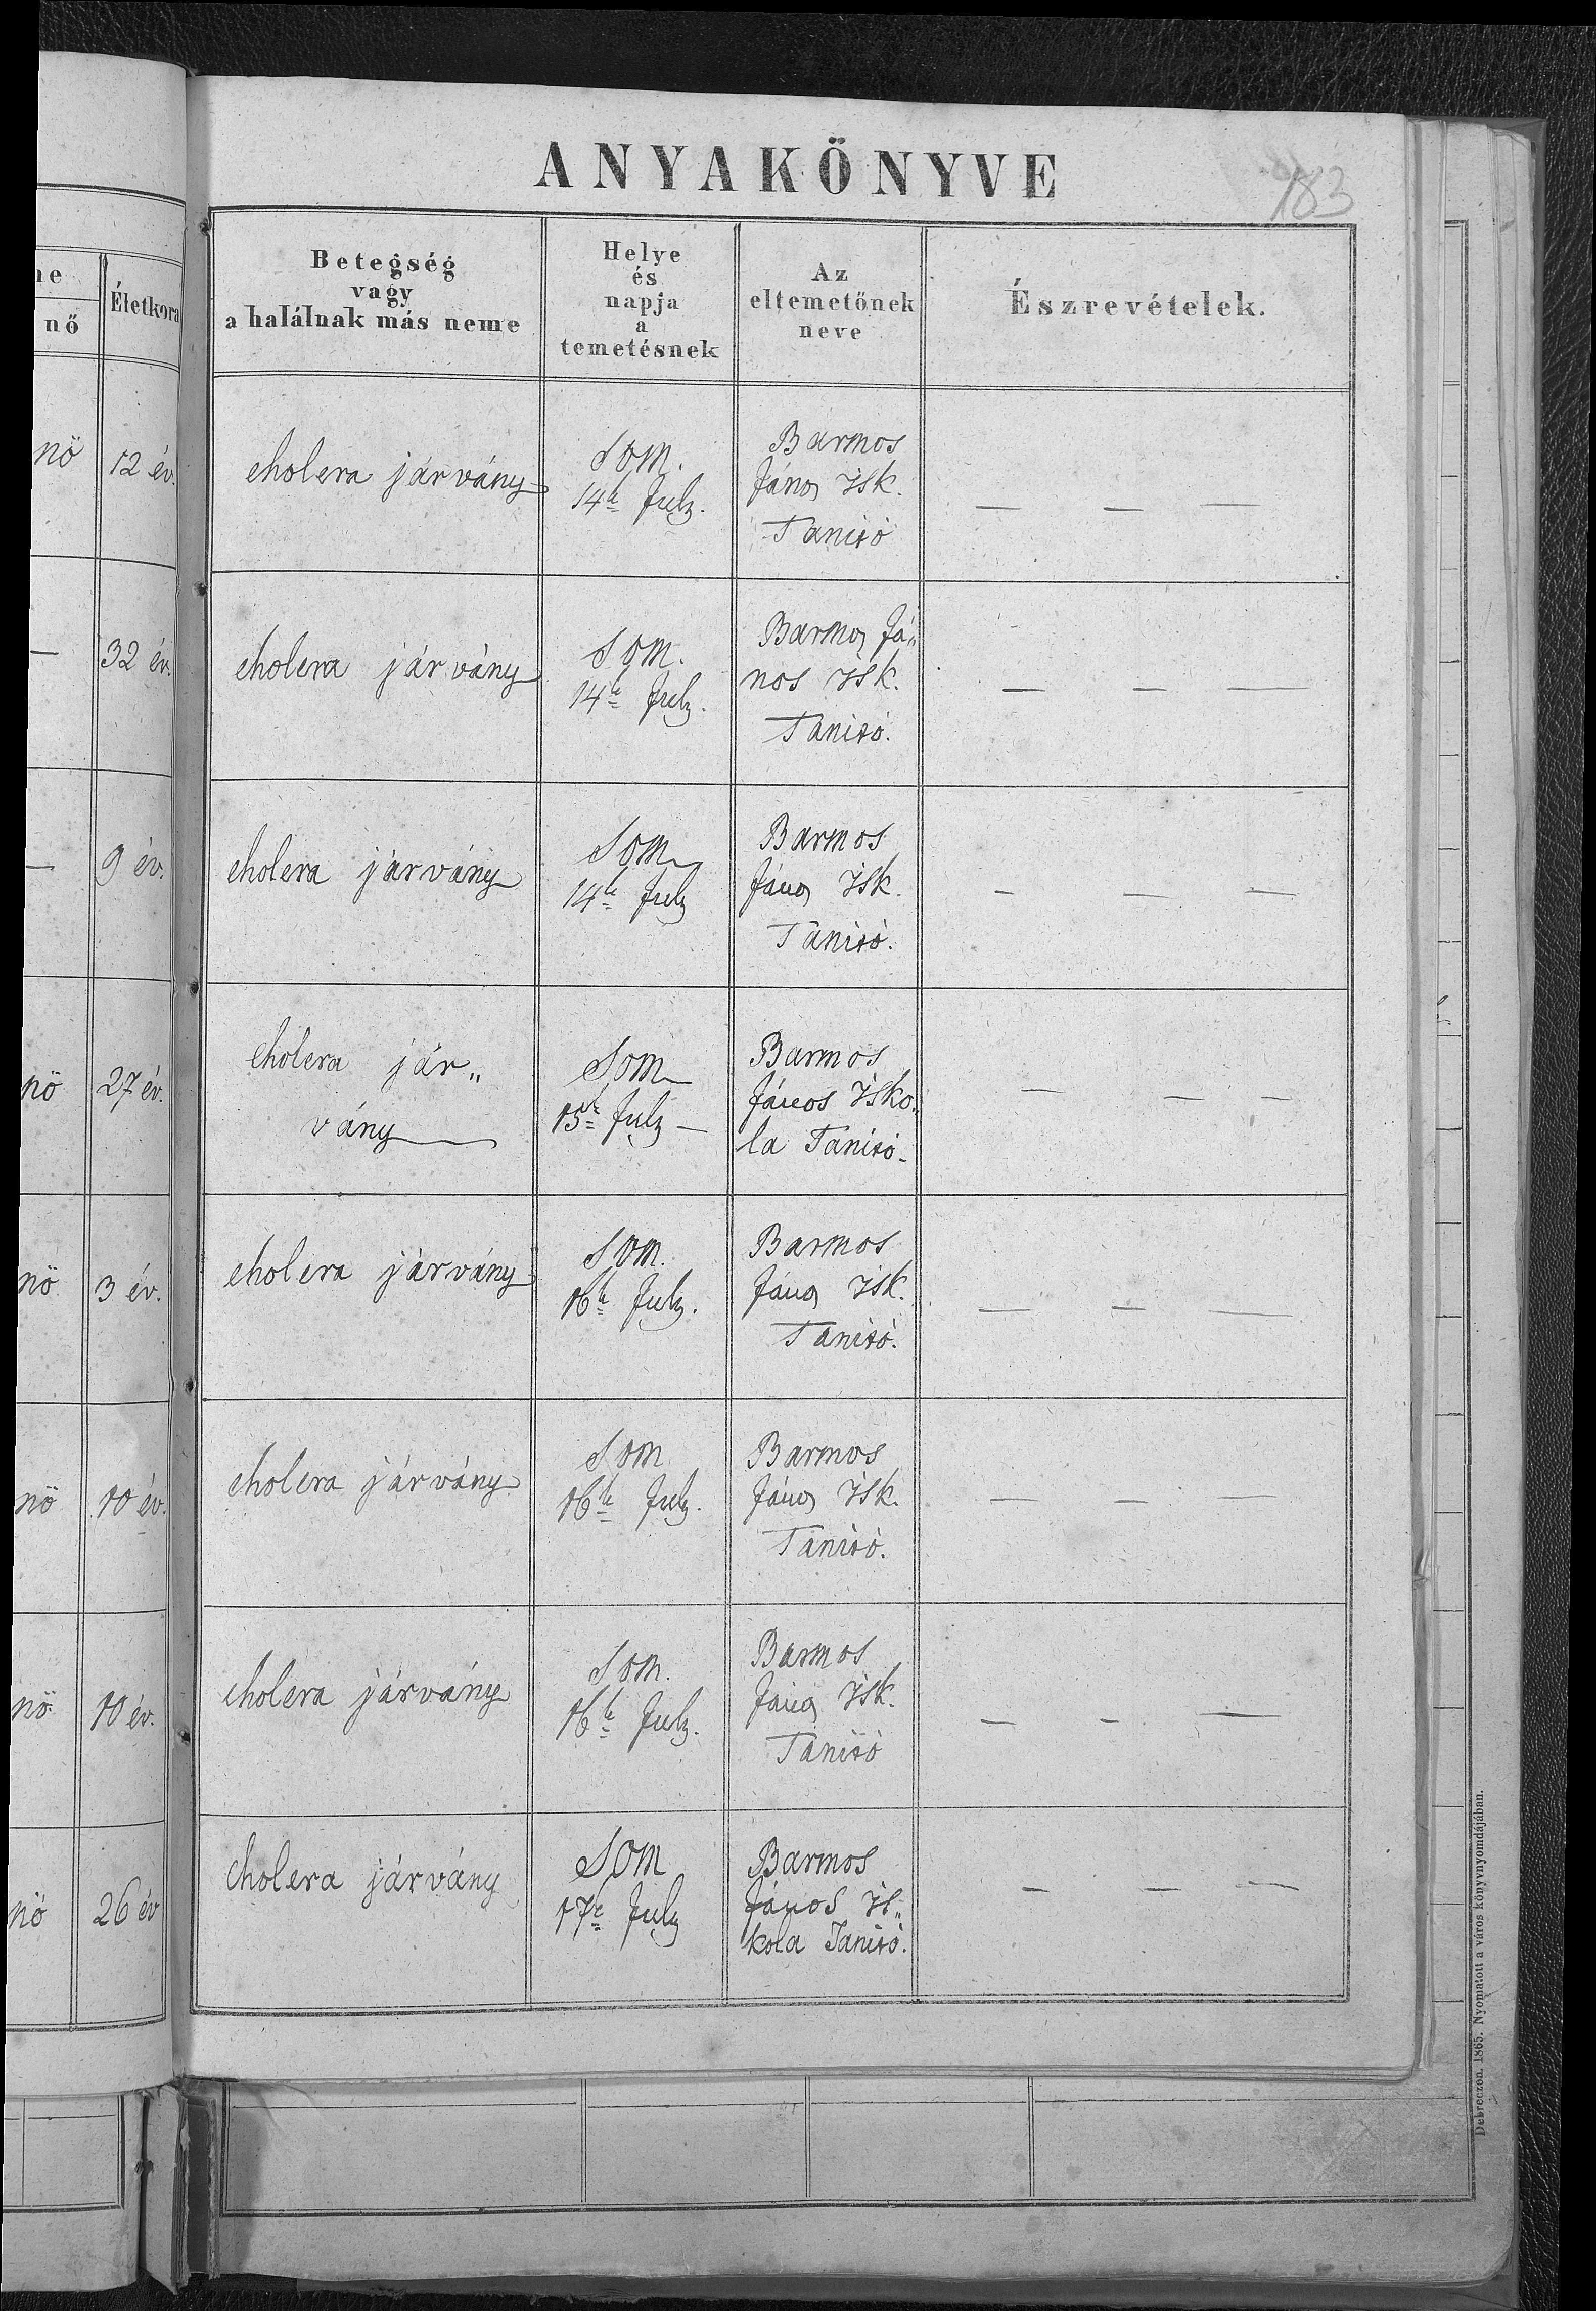 ANYAKÖNYVE
183
ne
nő
Életkora
Betegség
vagy
a halálnak más neme
Helye
és
napja
a
temetésnek
Az
eltemetőnek
neve
Észrevételek.
nö
12 év.
cholera járvány
Som.
14k July.
Barmos
János isk.
Tanitó
— — —
—
32 év.
cholera járvány
Som.
14k July.
Barmos Já„
nos isk.
Tanitó.
— — —
—
9 év.
cholera járvány
Som
14k July
Barmos
János isk.
Tanitó.
— — —
nö
27 év.
cholera jár„
vány
Som
15k July —
Barmos
János isko.
la Tanitó.
— — —
nö
3 év.
cholera járvány
Som.
16k July.
Barmos
János isk.
Tanitó.
— — —
nö
10 év.
cholera járvány
Som
16k July.
Barmos
János isk.
Tanitó.
— — —
nö
10 év.
cholera járvány
Som.
16k July.
Barmos
János isk.
Tanitó
— — —
nö
26 év
cholera járvány
Som
17k July
Barmos
János is„
kola Tanitó.
— — —
Debreczen. 1865. Nyomatott a város könyvnyomdájában.